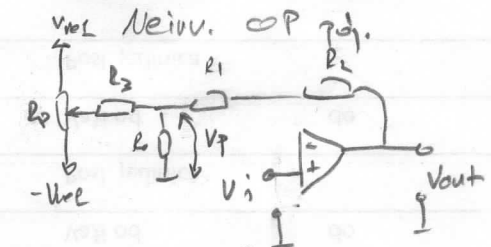 Vref Neinv. OP poj.
R1
R2
R3
Rp
Ro
Vp
-Vref
Vi
-
+
Vout